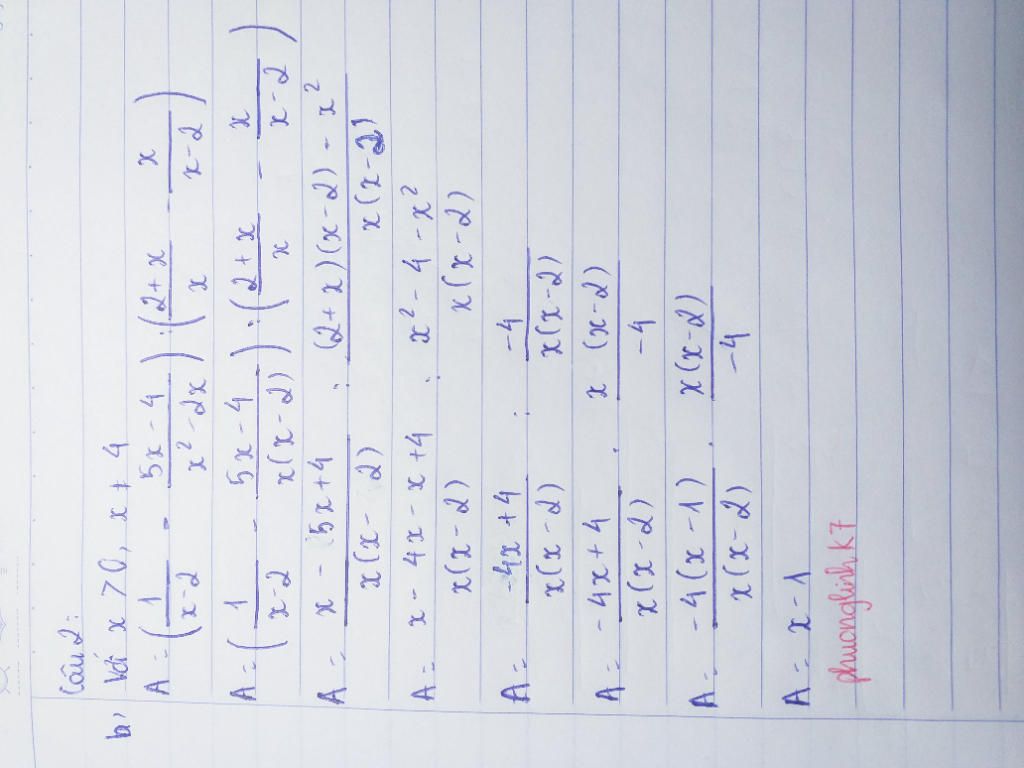 Câu 2:
b, Với x > 0, x ≠ 4
A = (1/(x-2) - (5x-4)/(x²-2x)) : ((2+x)/x - x/(x-2))
A = (1/(x-2) - (5x-4)/(x(x-2))) : ((2+x)/x - x/(x-2))
A = (x - 5x+4)/(x(x-2)) : ((2+x)(x-2) - x²)/(x(x-2))
A = (x - 4x - x + 4)/(x(x-2)) : (x² - 4 - x²)/(x(x-2))
A = (-4x+4)/(x(x-2)) : (-4)/(x(x-2))
A = (-4x+4)/(x(x-2)) . (x(x-2))/(-4)
A = (-4(x-1))/(x(x-2)) . (x(x-2))/(-4)
A = x - 1
phuonglinh K7